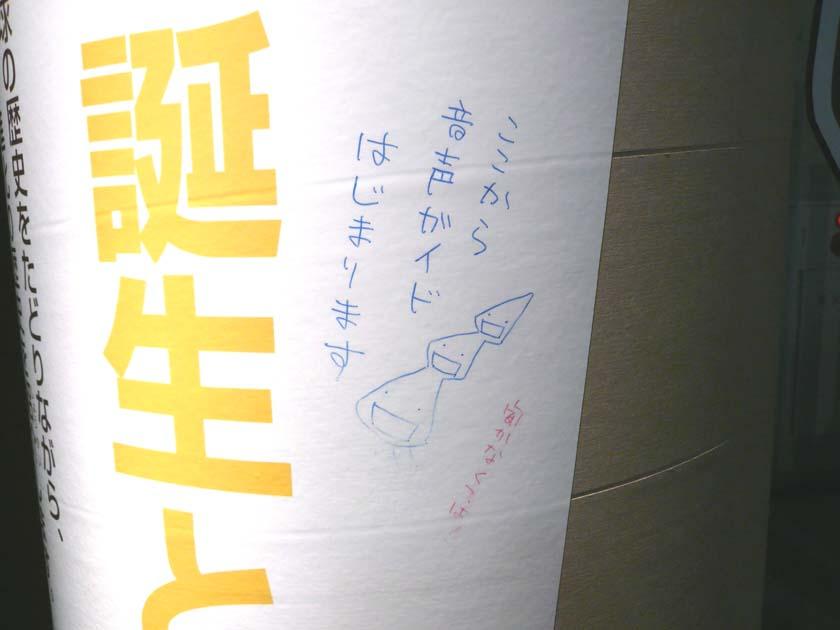 ここから
音声ガイド
はじまります
誕生と
球の歴史をたどりながら、